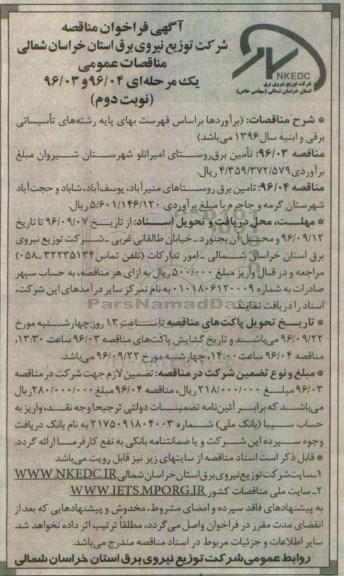 آگهی فراخوان مناقصه
شرکت توزیع نیروی برق استان خراسان شمالی
مناقصات عمومی
یک مرحله‌ای ۹۶/۰۴ و ۹۶/۰۳
(نوبت دوم)
NKEDC
شرکت توزیع نیروی برق
استان خراسان شمالی (سهامی خاص)
* شرح مناقصات: (برآوردها براساس فهرست بهای پایه رشته‌های تأسیساتی
برقی و ابنیه سال ۱۳۹۶ می‌باشد)
مناقصه ۹۶/۰۳: تأمین برق روستای امیرانلو شهرستان شیروان مبلغ
برآوردی ۴/۳۵۹/۳۷۲/۵۷۹ ریال.
مناقصه ۹۶/۰۴: تامین برق روستاهای منیرآباد، یوسف‌آباد، شاباد و حجت‌آباد
شهرستان گرمه و جاجرم با مبلغ برآوردی ۵/۶۰۱/۱۴۶/۱۲۰ ریال.
* مهلت، محل دریافت و تحویل اسناد: از تاریخ ۹۶/۰۹/۰۷ تا تاریخ
۹۶/۰۹/۱۲ و محل آن بجنورد - خیابان طالقانی غربی - شرکت توزیع نیروی
برق استان خراسان شمالی - امور تدارکات (تلفن تماس ۳۲۲۳۵۱۳۴-۰۵۸)
مراجعه و در قبال واریز مبلغ ۵۰۰/۰۰۰ ریال به ازای هر مناقصه، به حساب سپهر
صادرات به شماره ۰۱۰۱۸۰۶۱۲۰۰۰۹ به نام تمرکز سایر درآمدهای این شرکت،
اسناد را دریافت نمایند.
* تاریخ تحویل پاکت‌های مناقصه تا ساعت ۱۳ روز چهارشنبه مورخ
۹۶/۰۹/۲۲ می‌باشند و تاریخ گشایش پاکت‌های مناقصه ۹۶/۰۳ ساعت ۱۳:۳۰،
مناقصه ۹۶/۰۴ ساعت ۱۴:۰۰، چهارشنبه مورخ ۹۶/۰۹/۲۲ می‌باشد.
* مبلغ و نوع تضمین شرکت در مناقصه: تضمین لازم جهت شرکت در مناقصه
۹۶/۰۳ مبلغ ۲۱۸/۰۰۰/۰۰۰ ریال، مناقصه ۹۶/۰۴ مبلغ ۲۸۰/۰۰۰/۰۰۰ ریال
می‌باشد که برابر آئین‌نامه تضمینات دولتی ترجیحا وجه نقد، واریز به
حساب سیبا (بانک ملی) شماره ۲۱۷۵۰۹۱۸۰۴۰۰۳ به نام بانک دریافت
وجوه سپرده این شرکت و یا ضمانتنامه بانکی به نفع کارفرما ارائه گردد.
* قابل ذکر است اسناد مناقصه از سایتهای زیر نیز قابل رویت می‌باشد
۱- سایت شرکت توزیع نیروی برق استان خراسان شمالی WWW.NKEDC.IR
۲- سایت ملی مناقصات کشور WWW.IETS.MPORG.IR
به پیشنهادهای فاقد سپرده و امضای مشروط، مخدوش و پیشنهادهایی که بعد از
انقضای مدت مقرر در فراخوان واصل می‌گردد، مطلقا ترتیب اثر داده نخواهد شد.
سایر اطلاعات و جزئیات مربوط در اسناد مناقصه مندرج می‌باشد.
روابط عمومی شرکت توزیع نیروی برق استان خراسان شمالی